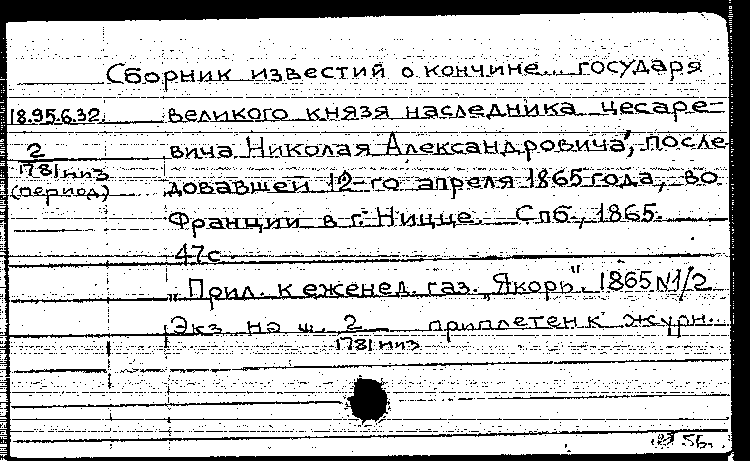 Сборник известий о кончине... государя
18.95.6.32. великого князя наследника цесаре-
2 вича Николая Александровича, после
1781 низ
(период) довавшей 12-го апреля 1865 года, во
Франции в г. Ницце. Спб., 1865.
47с.
"Прил. к еженед. газ. "Якорь". 1865 N1/2
Экз. на ш. 2 приплетен к журн.
1781 низ
56.